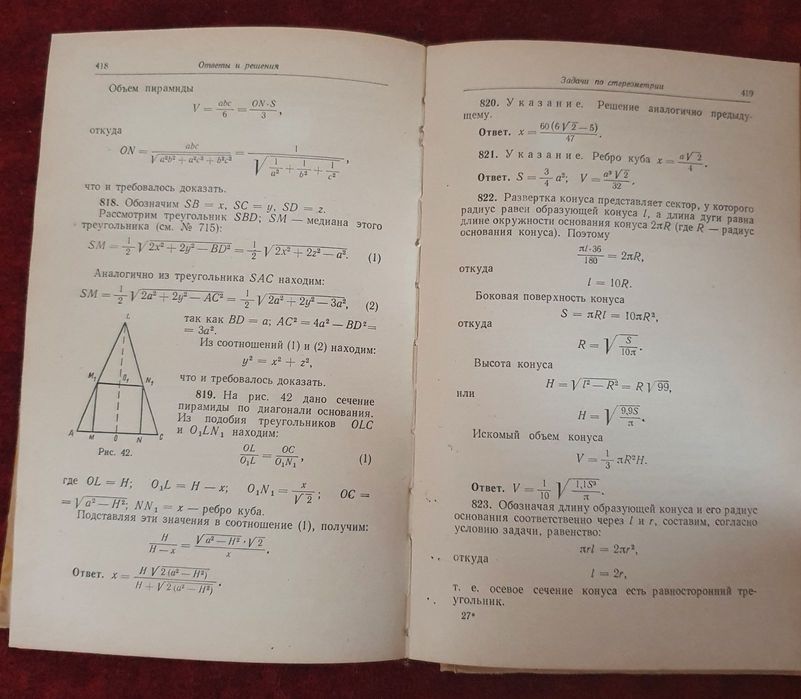 418 Ответы и решения
Объем пирамиды
V = abc/6 = ON·S/3,
откуда
ON = abc/√(a²b² + a²c² + b²c²) = 1/√(1/a² + 1/b² + 1/c²),
что и требовалось доказать.
818. Обозначим SB = x, SC = y, SD = z.
Рассмотрим треугольник SBD; SM — медиана этого
треугольника (см. № 715):
SM = 1/2 √(2x² + 2y² — BD²) = 1/2 √(2x² + 2z² — a²). (1)
Аналогично из треугольника SAC находим:
SM = 1/2 √(2a² + 2y² — AC²) = 1/2 √(2a² + 2y² — 3a²), (2)
так как BD = a; AC² = 4a² — BD² =
= 3a².
Из соотношений (1) и (2) находим:
y² = x² + z²,
что и требовалось доказать.
819. На рис. 42 дано сечение
пирамиды по диагонали основания.
Из подобия треугольников OLC
и O₁LN₁ находим:
OL/O₁L = OC/O₁N₁, (1)
L
M₁ O₁ N₁
A M O N C
Рис. 42.
где OL = H; O₁L = H — x; O₁N₁ = x/√2; OC =
= √(a² — H²); NN₁ = x — ребро куба.
Подставляя эти значения в соотношение (1), получим:
H/(H — x) = √(a² — H²)·√2/x.
Ответ. x = H√(2(a² — H²))/(H + √(2(a² — H²))).
Задачи по стереометрии 419
820. Указание. Решение аналогично предыду-
щему.
Ответ. x = 60(6√2 — 5)/47.
821. Указание. Ребро куба x = a√2/4.
Ответ. S = 3/4 a²; V = a³√2/32.
822. Развертка конуса представляет сектор, у которого
радиус равен образующей конуса l, а длина дуги равна
длине окружности основания конуса 2πR (где R — радиус
основания конуса). Поэтому
πl·36/180 = 2πR,
откуда
l = 10R.
Боковая поверхность конуса
S = πRl = 10πR²,
откуда
R = √(S/10π).
Высота конуса
H = √(l² — R²) = R√99,
или
H = √(9,9S/π).
Искомый объем конуса
V = 1/3 πR²H.
Ответ. V = 1/10 √(1,1S³/π).
823. Обозначая длину образующей конуса и его радиус
основания соответственно через l и r, составим, согласно
условию задачи, равенство:
πrl = 2πr²,
откуда
l = 2r,
т. е. осевое сечение конуса есть равносторонний тре-
угольник.
27*